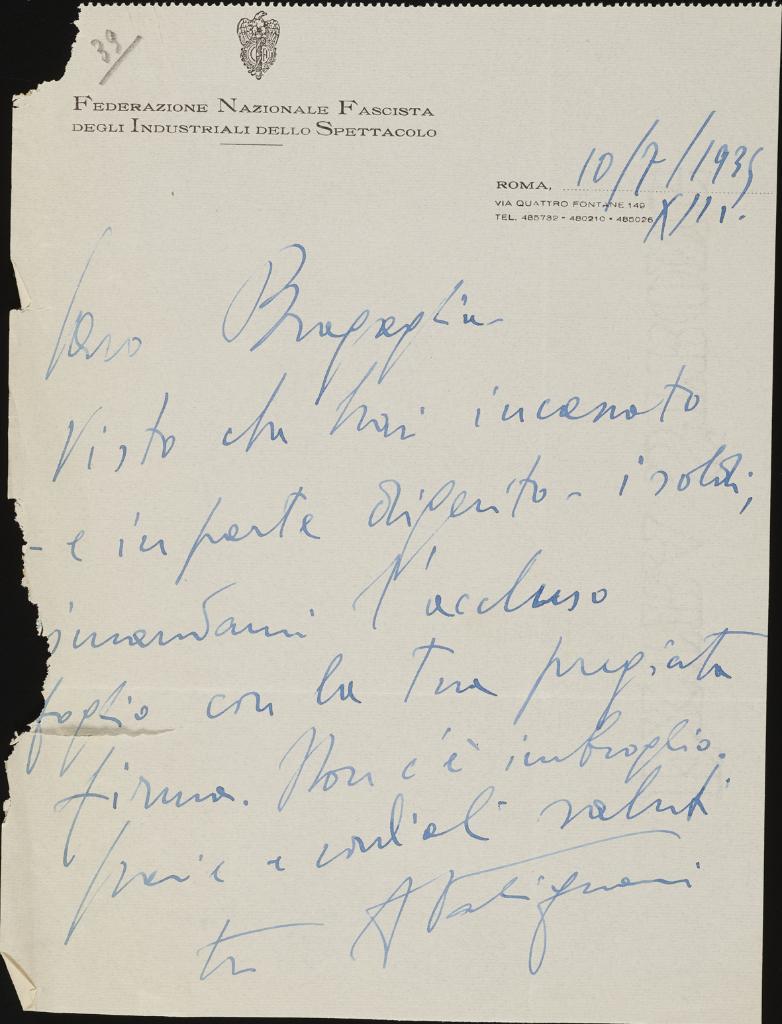 39
FEDERAZIONE NAZIONALE FASCISTA
DEGLI INDUSTRIALI DELLO SPETTACOLO
ROMA, 10/7/1935
VIA QUATTRO FONTANE 149
TEL. 485732 - 480210 - 485026
XIII.
Caro Bragaglia
Visto che hai incassato
- e in parte digerito - i soldi,
rimandami l'accluso
foglio con la Tua pregiata
firma. Non c'è imbroglio.
Grazie e cordiali saluti
tuo